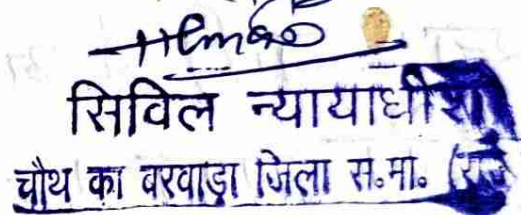 सिविल न्यायाधीश
चौथ का बरवाड़ा जिला स.मा. (राज